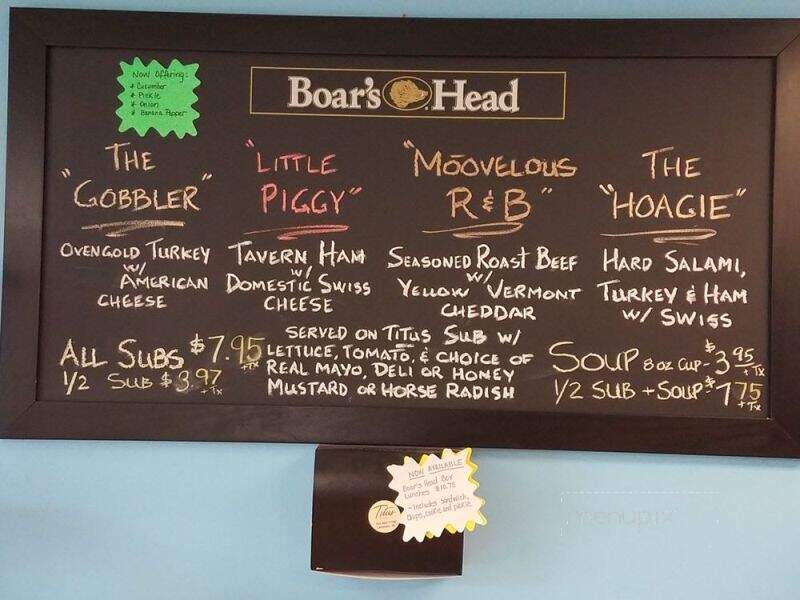 Now Offering:
* Cucumber
* Pickle
* Onion
* Banana Pepper
Boar's Head
THE
"GOBBLER"
OVENGOLD TURKEY
W/
AMERICAN
CHEESE
"LITTLE
PIGGY"
TAVERN HAM
W/
DOMESTIC SWISS
CHEESE
"MOOVELOUS
R & B"
SEASONED ROAST BEEF
W/
YELLOW VERMONT
CHEDDAR
THE
"HOAGIE"
HARD SALAMI,
TURKEY & HAM
W/ SWISS
ALL SUBS $7.95
+ Tx
1/2 SUB $3.97
+ Tx
SERVED ON TITUS SUB W/
LETTUCE, TOMATO, & CHOICE OF
REAL MAYO, DELI OR HONEY
MUSTARD OR HORSE RADISH
SOUP 8 OZ CUP - $3.95
+ Tx
1/2 SUB + SOUP - $7.75
+ Tx
NOW AVAILABLE
Boar's Head Box
Lunches $10.75
- Includes Sandwich,
Chips, cookie and pickle
Titus
menupix